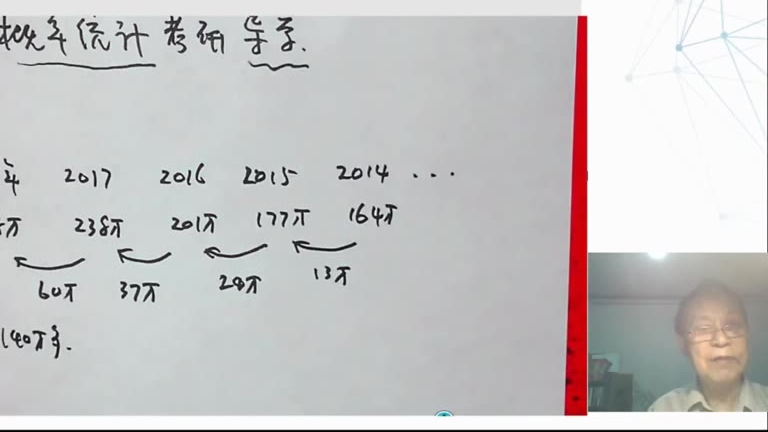 概率统计考研导学.
年 2017 2016 2015 2014 ...
万 238万 201万 177万 164万
60万 37万 24万 13万
140万}.